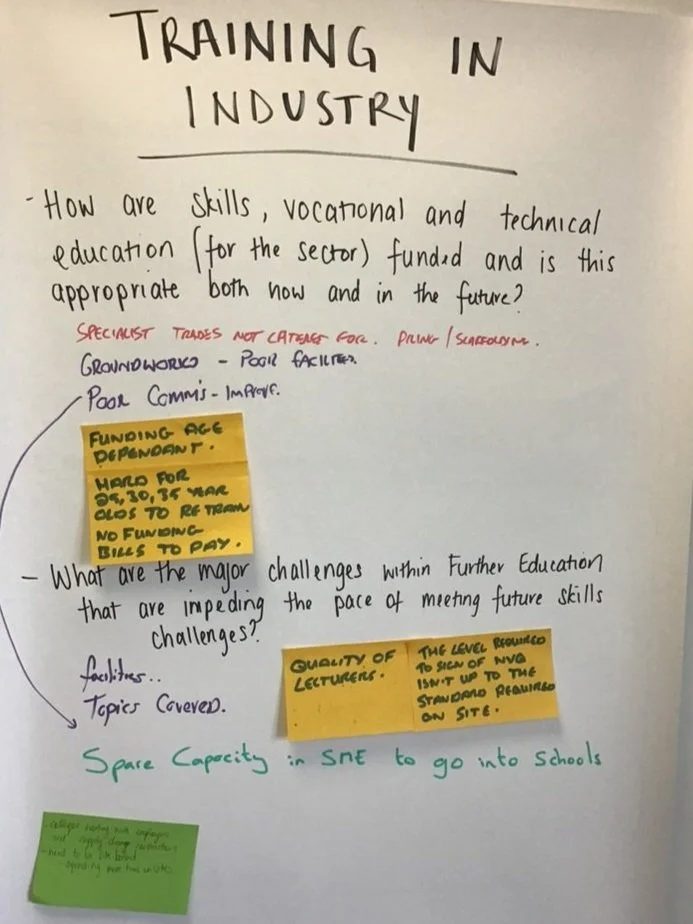 TRAINING IN
INDUSTRY
- How are skills, vocational and technical
education (for the sector) funded and is this
appropriate both now and in the future?
SPECIALIST TRADES NOT CATERED FOR. PILING / SCAFFOLDING.
GROUNDWORKS - POOR FACILITIES.
POOR COMM'S - IMPROVE.
FUNDING AGE
DEPENDANT.
HARD FOR
25, 30, 35 YEAR
OLDS TO RETRAIN
NO FUNDING
BILLS TO PAY.
- What are the major challenges within Further Education
that are impeding the pace of meeting future skills
challenges?
facilities..
Topics Covered.
QUALITY OF
LECTURERS.
THE LEVEL REQUIRED
TO SIGN OF NVQ
ISN'T UP TO THE
STANDARD REQUIRED
ON SITE.
Spare Capacity in SME to go into Schools
need to be
spending more time on